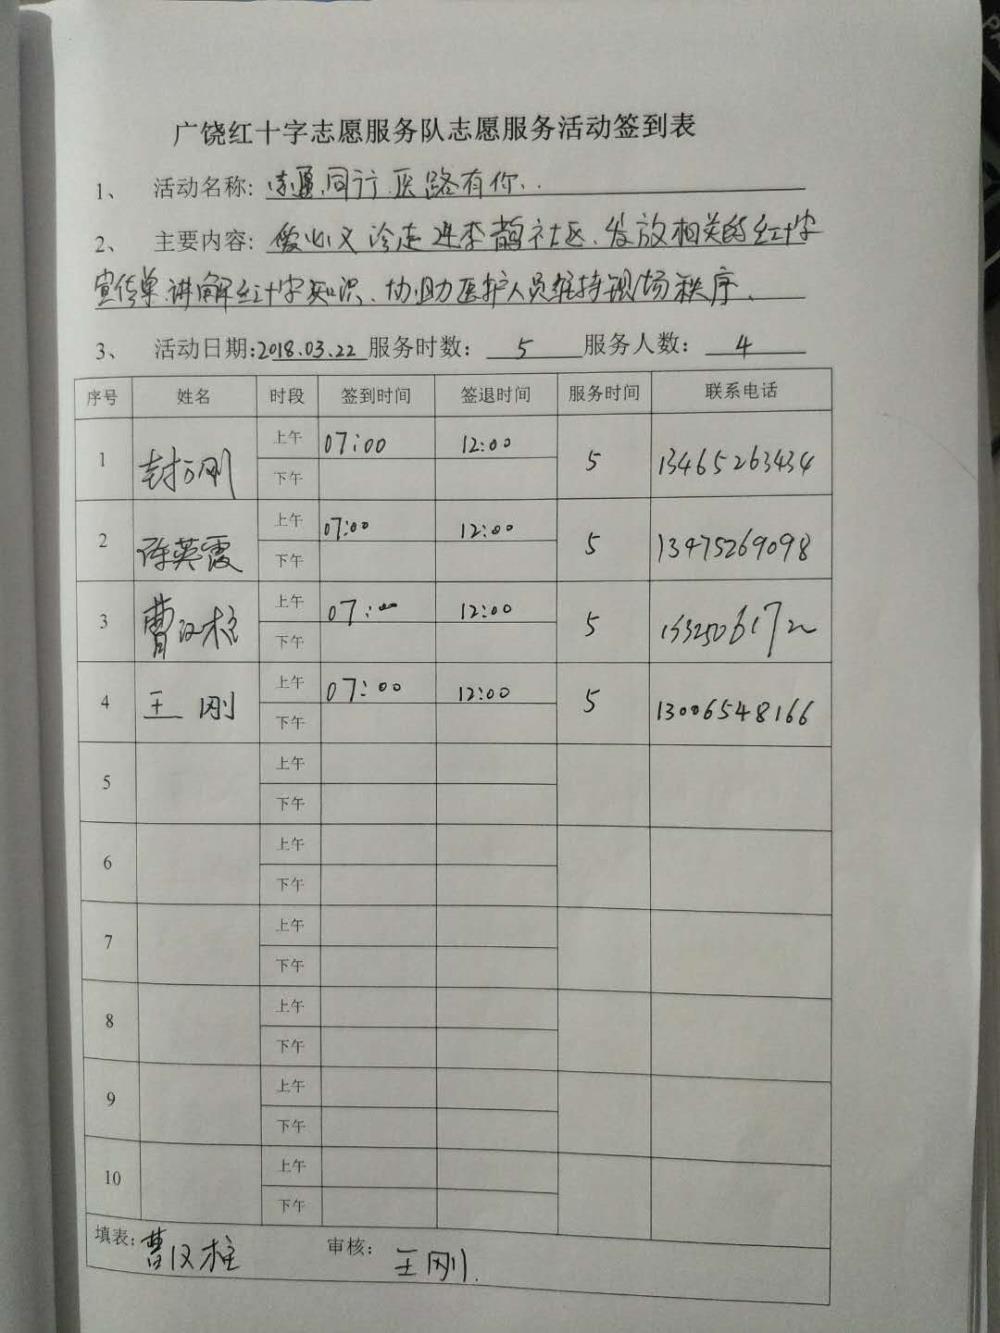 广饶红十字志愿服务队志愿服务活动签到表
1、 活动名称: 志愿同行.医路有你..
2、 主要内容: 爱心义诊走进李鹊社区、发放相关的红十字
宣传单.讲解红十字知识、协助医护人员维持现场秩序、
3、 活动日期:2018.03.22 服务时数: 5 服务人数: 4
序号 姓名 时段 签到时间 签退时间 服务时间 联系电话
1 封万刚 上午 07:00 12:00 5 13465263434
下午
2 陈英霞 上午 07:00 12:00 5 13475269098
下午
3 曹汉柱 上午 07:00 12:00 5
下午
4 王刚 上午 07:00 12:00 5 13006548166
下午
5 上午
下午
6 上午
下午
7 上午
下午
8 上午
下午
9 上午
下午
10 上午
下午
填表: 曹汉柱 审核: 王刚.